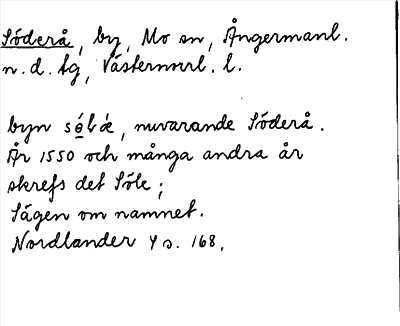 Söderå, by, Mo sn, Ångermanl.
n. d. tg, Västernorrl. l.
byn sǿ̱lǽ, nuvarande Söderå.
År 1550 och många andra år
skrefs det Söle;
Sägen om namnet.
Nordlander 4 s. 168.